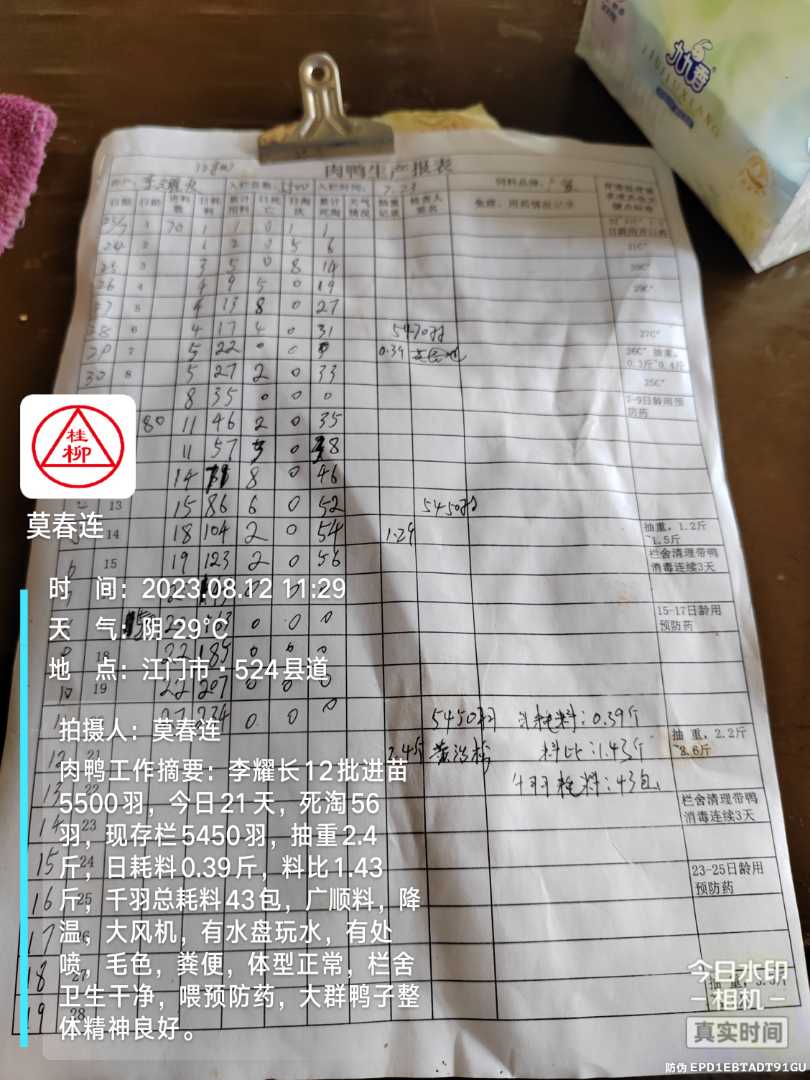 九九香
JIUJIUXIANG
肉鸭生产报表
入栏时间: 7.23
饲料品牌:
日龄 日耗料 累计用料 日死亡 日淘汰 累计死淘 天气情况 抽重记录 检查人签名 免疫、用药情况记录
1 70 1 1 0 1 1
24 2 1 2 0 5 6
31C°
25 3 3 5 0 8 14
30C°
26 4 4 9 5 0 19
29C°
27 5 4 13 8 0 27
28 6 4 17 4 0 31 5470羽
27C°
29 7 5 22 0 0 0.39
26C° 抽重,
0.3斤~0.4斤
30 8 5 27 2 0 33
25C°
8 35 0 0 0
7-9日龄用预
防药
80 11 46 2 0 35
11 57 0 38
14 8 0 46
13 15 86 6 0 52 5450羽
14 18 104 2 0 54 1.29
抽重, 1.2斤
~1.5斤
15 19 123 2 0 56
栏舍清理带鸭
消毒连续3天
15-17日龄用
预防药
18 22 185 0 0 0
10 19 22 207 0 0 0
27 234 0 0 0 5450羽 只耗料:0.39斤
12 21 2.4斤 料比:1.43斤
抽重, 2.2斤
~2.6斤
13 22 千羽耗料:43包
14 23
栏舍清理带鸭
消毒连续3天
15 24
16 25
23-25日龄用
预防药
17 26
18 27
19 28
桂柳
莫春连
时 间:2023.08.12 11:29
天 气:阴 29℃
地 点:江门市·524县道
拍摄人:莫春连
肉鸭工作摘要:李耀长12批进苗
5500羽,今日21天,死淘56
羽,现存栏5450羽,抽重2.4
斤,日耗料0.39斤,料比1.43
斤,千羽总耗料43包,广顺料,降
温,大风机,有水盘玩水,有处
喷,毛色,粪便,体型正常,栏舍
卫生干净,喂预防药,大群鸭子整
体精神良好。
今日水印
相机
真实时间
防伪 EPD1EBTADT91GU